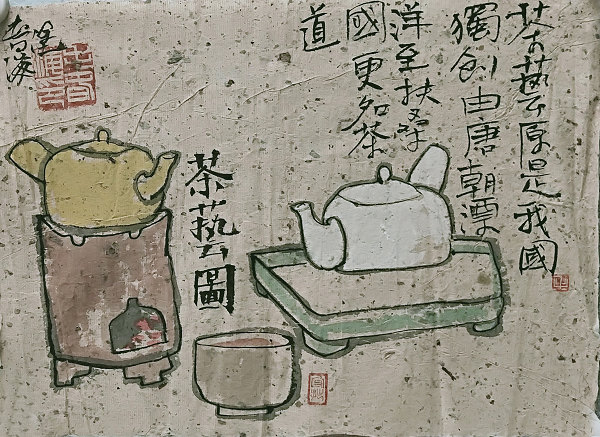 茶藝原是我國
獨創由唐朝漂
洋至扶桑
國更名茶
道
茶藝圖